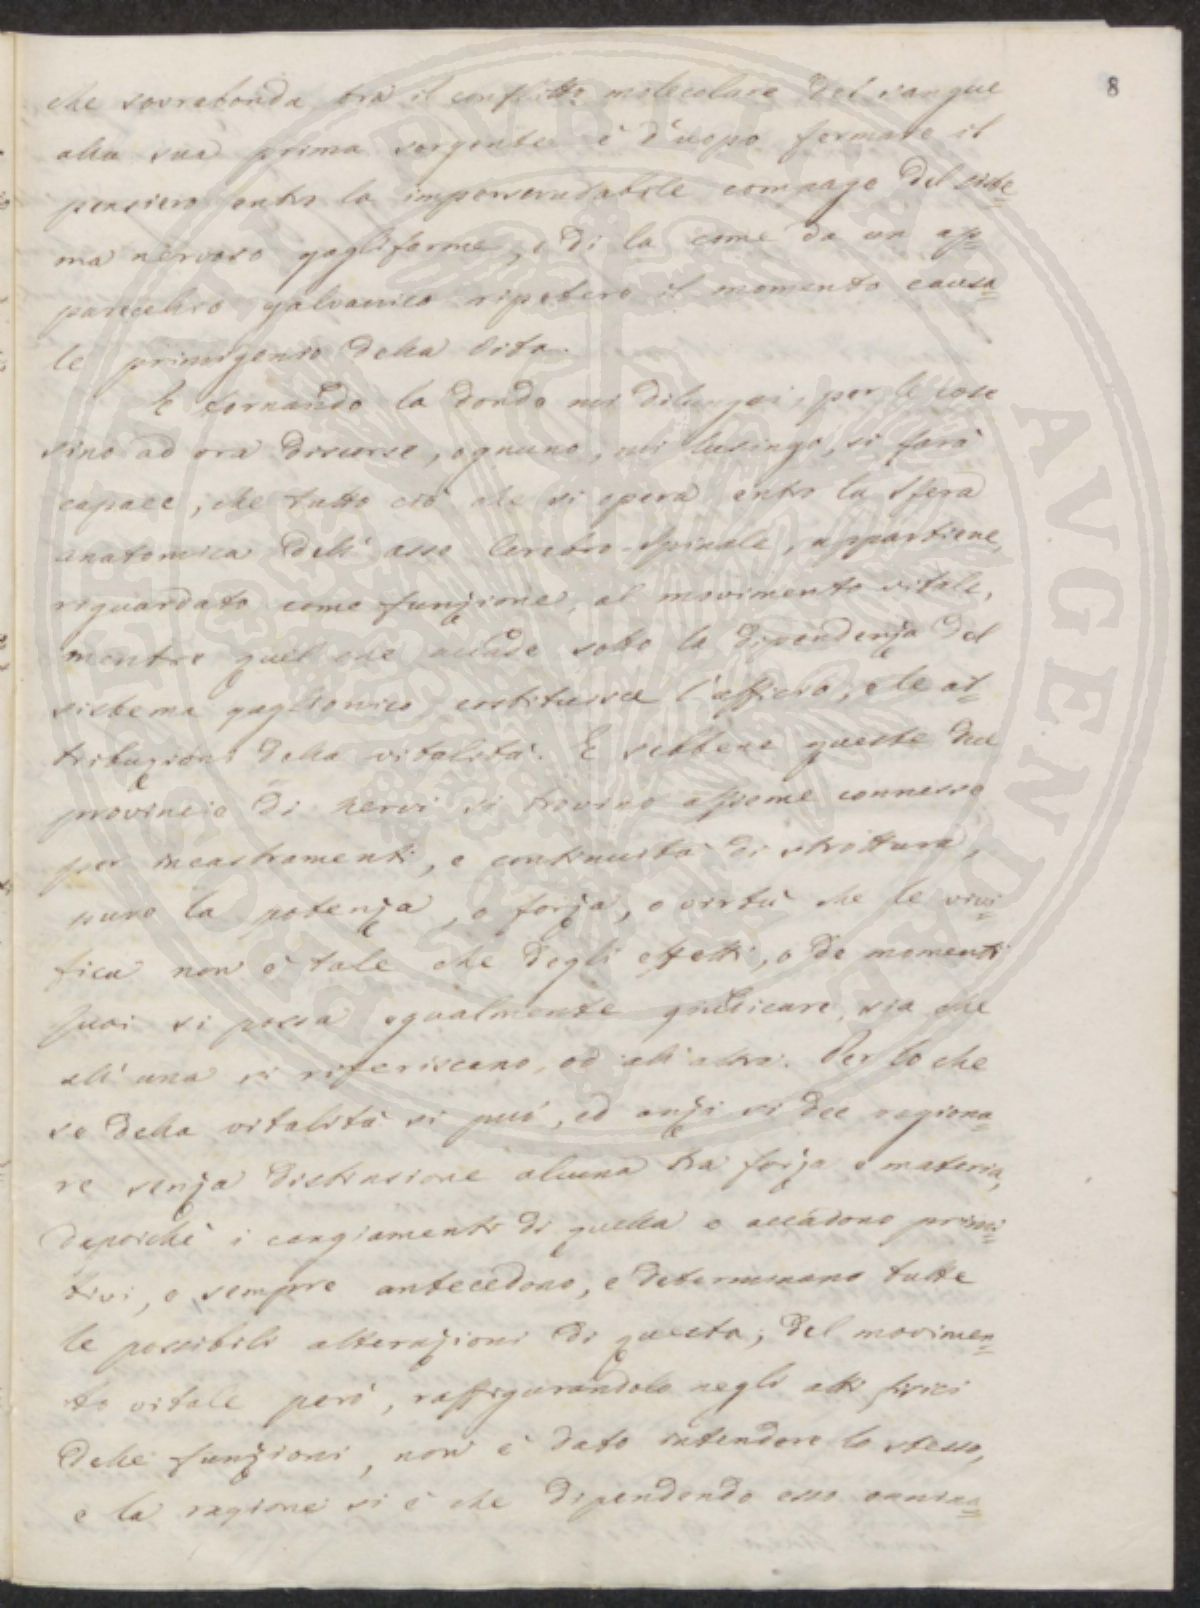 8
che sovrabonda tra il conflitto molecolare del sangue
alla sua prima sorgente è d'uopo fermare il
pensiero entro la imperscrudabile compage del siste
ma nervoso gagliforme, e di la come da un ap=
parecchio galvanico ripetere il momento causa=
le primigenio della vita.
E tornando la donde mi dilungai, per le cose
sino ad ora discorse, ognuno, mi lusingo, si farà
capace, che tutto ciò che si opera entro la sfera
anatomica dell' asse Cerebro-Spinale, appartiene,
riguardato come funzione, al movimento vitale,
mentre quel che accade sotto la dipendenza del
sistema ganglionico, costituisce l'officio, e le at=
tribuzioni della vitalità. E sebbene queste due
provincie di nervi si trovino assieme connesse
per incastramenti, e continuità di struttura,
pure la potenza, o forza, o virtù che le vivi=
fica non è tale che degli effetti, o de momenti
suoi si possa egualmente giudicare, sia che
all' una si riferiscano, od all'altra. Per lo che
se della vitalità si può, ed anzi si dee ragiona=
re senza distinzione alcuna tra forza e materia,
dapoichè i cangiamenti di quella o accadono primi=
tivi, o sempre antecedono, e determinano tutte
le possibili alterazioni di questa; del movimen=
to vitale però, raffigurandolo negli atti fisici
delle funzioni, non è dato intendere lo stesso,
e la ragione si è che dipendendo esso onnina=
SENATVS PVBLICAE AVGENDAE